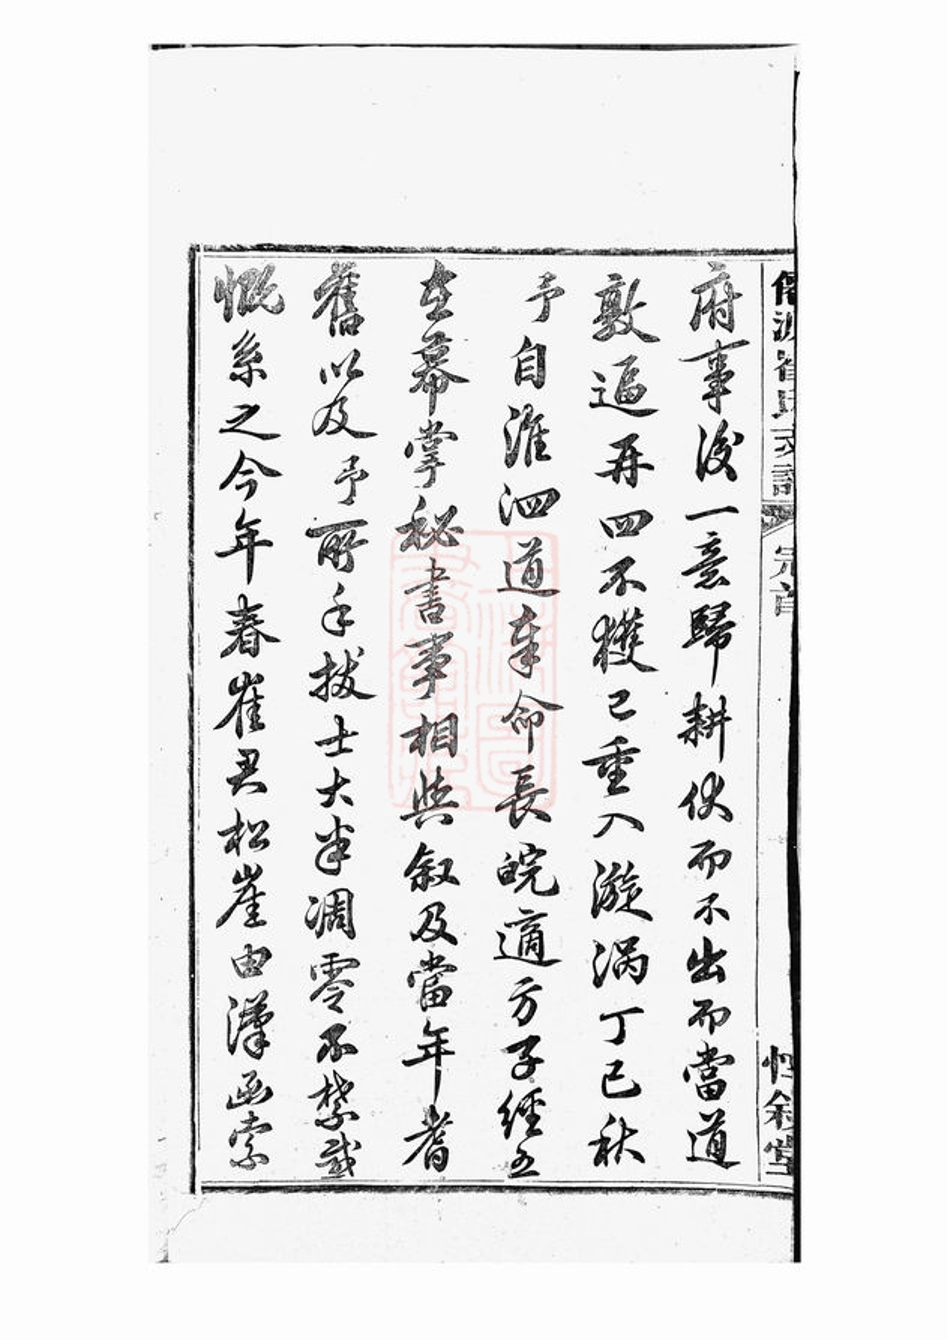 崔氏支譜 宗首 惇叙堂
府事後一意歸耕伏而不出而當道
敦逼再四不獲已重入漩渦丁巳秋
予自淮泗道奉命長皖適方子經五
在幕掌秘書事相與叙及當年耆
舊以及予所手拔士大半凋零不禁感
慨系之今年春崔君松崖由漢函索